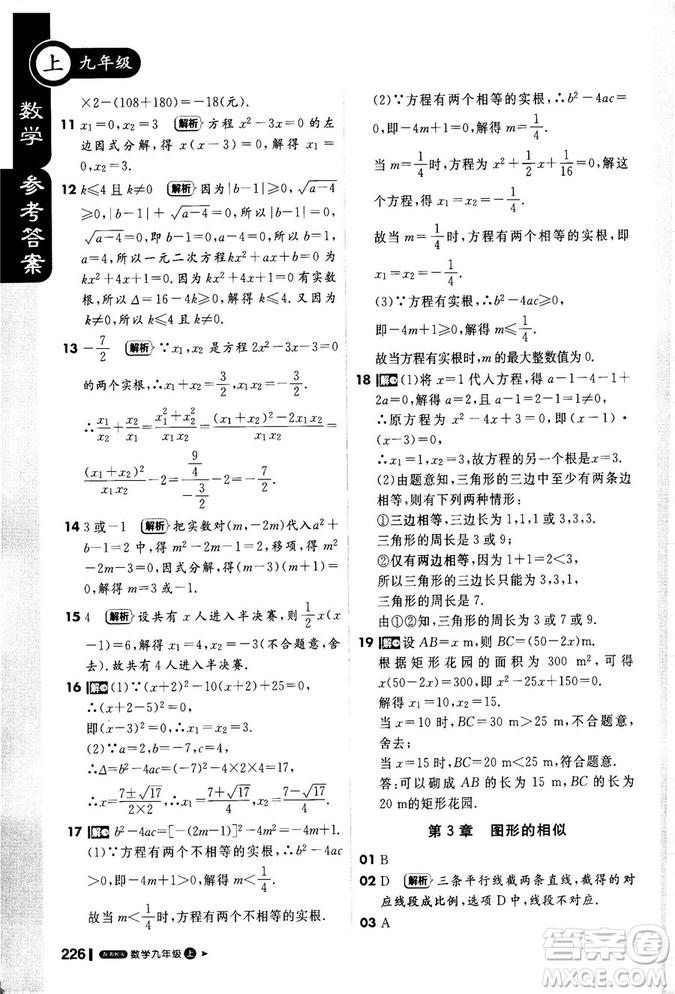 上 九年级
数学 参考答案
×2-(108+180)=-18(元).
11 x₁=0,x₂=3 解析 方程 x²-3x=0 的左
边因式分解,得 x(x-3)=0,解得 x₁=0,
x₂=3.
12 k≤4 且 k≠0 解析 因为|b-1|≥0,√(a-4)
≥0,所以|b-1|+√(a-4)=0,所以|b-1|=0,
√(a-4)=0,即 b-1=0,a-4=0,解得 b=1,
a=4,所以一元二次方程 kx²+ax+b=0 为
kx²+4x+1=0.因为 kx²+4x+1=0 有实数
根,所以 Δ=16-4k≥0,解得 k≤4.又因为
k≠0,所以 k≤4 且 k≠0.
13 -7/2 解析 ∵x₁,x₂ 是方程 2x²-3x-3=0
的两个实根,∴x₁+x₂=3/2,x₁x₂=-3/2.
∴x₁/x₂+x₂/x₁=(x₁²+x₂²)/(x₁x₂)=((x₁+x₂)²-2x₁x₂)/(x₁x₂)=
(x₁+x₂)²/(x₁x₂)-2=(9/4)/(-3/2)-2=-7/2.
14 3 或-1 解析 把实数对(m,-2m)代入a²+
b-1=2 中,得 m²-2m-1=2,移项,得 m²
-2m-3=0,因式分解,得(m-3)(m+1)=
0,解得 m=3 或-1.
15 4 解析 设共有 x 人进入半决赛,则 1/2 x(x
-1)=6,解得 x₁=4,x₂=-3(不合题意,舍
去).故共有 4 人进入半决赛.
16 解 (1)∵(x+2)²-10(x+2)+25=0,
∴(x+2-5)²=0,
即(x-3)²=0,∴x₁=x₂=3.
(2)∵a=2,b=-7,c=4,
∴Δ=b²-4ac=(-7)²-4×2×4=17,
∴x=(7±√17)/(2×2),∴x₁=(7+√17)/4,x₂=(7-√17)/4.
17 解 b²-4ac=[-(2m-1)]²-4m²=-4m+1.
(1)∵方程有两个不相等的实根,∴b²-4ac
>0,即-4m+1>0,∴m<1/4.
故当 m<1/4 时,方程有两个不相等的实根.
(2)∵方程有两个相等的实根,∴b²-4ac=
0,即-4m+1=0,∴m=1/4.
当 m=1/4 时,方程为 x²+1/2 x+1/16=0,
解得 x₁=x₂=-1/4.
故当 m=1/4 时,方程有两个相等的实根,此
时 x₁=x₂=-1/4.
(3)∵当方程有实根时,b²-4ac≥0,
即-4m+1≥0,∴m≤1/4.
故当方程有实根时,m 的最大整数值为 0.
18 解 (1)将 x=1 代入方程,得 a-1-4-1+
2a=0,解得 a=2,
∴原方程为 x²-4x+3=0,即(x-1)·
(x-3)=0.
∴x₁=1,x₂=3.故方程的另一个根为 x=3.
(2)由题意知,三角形的三边中至少有两条边
相等,则有下列两种情形:
①三边相等,边长为 1,1,1 或 3,3,3.
三角形的周长是 3 或 9;
②仅有两边相等,∵1+1=2<3,
所以三角形的边长只能为 3,3,1.
三角形的周长是 7.
由①②知,三角形的周长为 3 或 9 或 7.
19 解 设 AB=x m,则 BC=(50-2x)m.
根据矩形花园的面积为 300 m²,可得
x(50-2x)=300,
解得 x₁=10,x₂=15.
当 x=10 时,BC=30 m>25 m,不合题意,
舍去;
当 x=15 时,BC=20 m<25 m,符合题意.
答:可以砌成 AB 的长为 15 m,BC 的长为
20 m的矩形花园.
第 3 章 图形的相似
01 B
02 D 解析 三条平行线截两条直线,截得的对
应线段成比例,选项 D 不是对应线段.
03 A
226 数学九年级 上